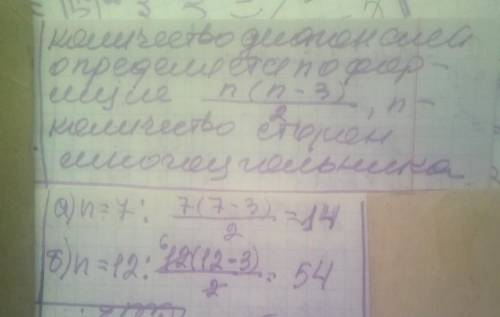 количество диагоналей
определяется по фор-
муле n(n-3)/2, n-
количество сторон
многоугольника
а) n=7: 7(7-3)/2=14
б) n=12: 12(12-3)/2= 54